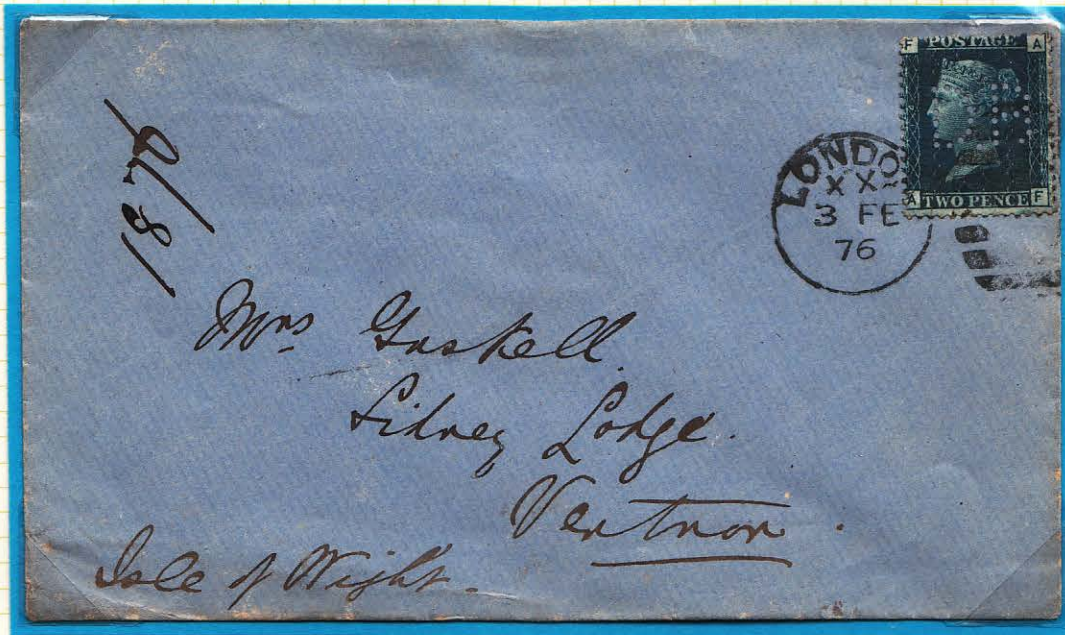 F POSTAGE A
A TWO PENCE F
LONDO
X X
3 FE
76
1876
Mrs Gaskell
Sidney Lodge.
Ventnor.
Isle of Wight.